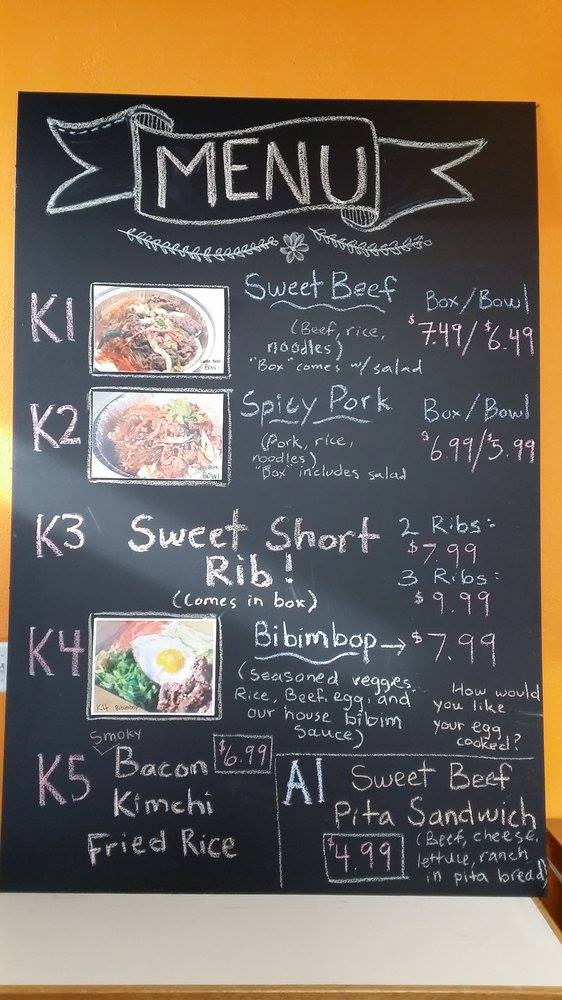 MENU
K1
Sweet Beef
(Beef, rice,
noodles)
"Box" comes w/ salad
Box/Bowl
$7.49/$6.49
K2
Spicy Pork
(Pork, rice,
noodles)
"Box" includes salad
Box/Bowl
$6.99/$5.99
BOWL
K3
Sweet Short
Rib!
(Comes in box)
2 Ribs:
$7.99
3 Ribs:
$9.99
K4
K4 Bibimbop
Bibimbop → $7.99
(Seasoned veggies
Rice, Beef, egg, and
our house bibim
sauce)
How would
you like
your egg
cooked?
K5
Smoky
Bacon
Kimchi
Fried Rice
$6.99
A1
Sweet Beef
Pita Sandwich
$4.99
(Beef, cheese,
lettuce, ranch
in pita bread)